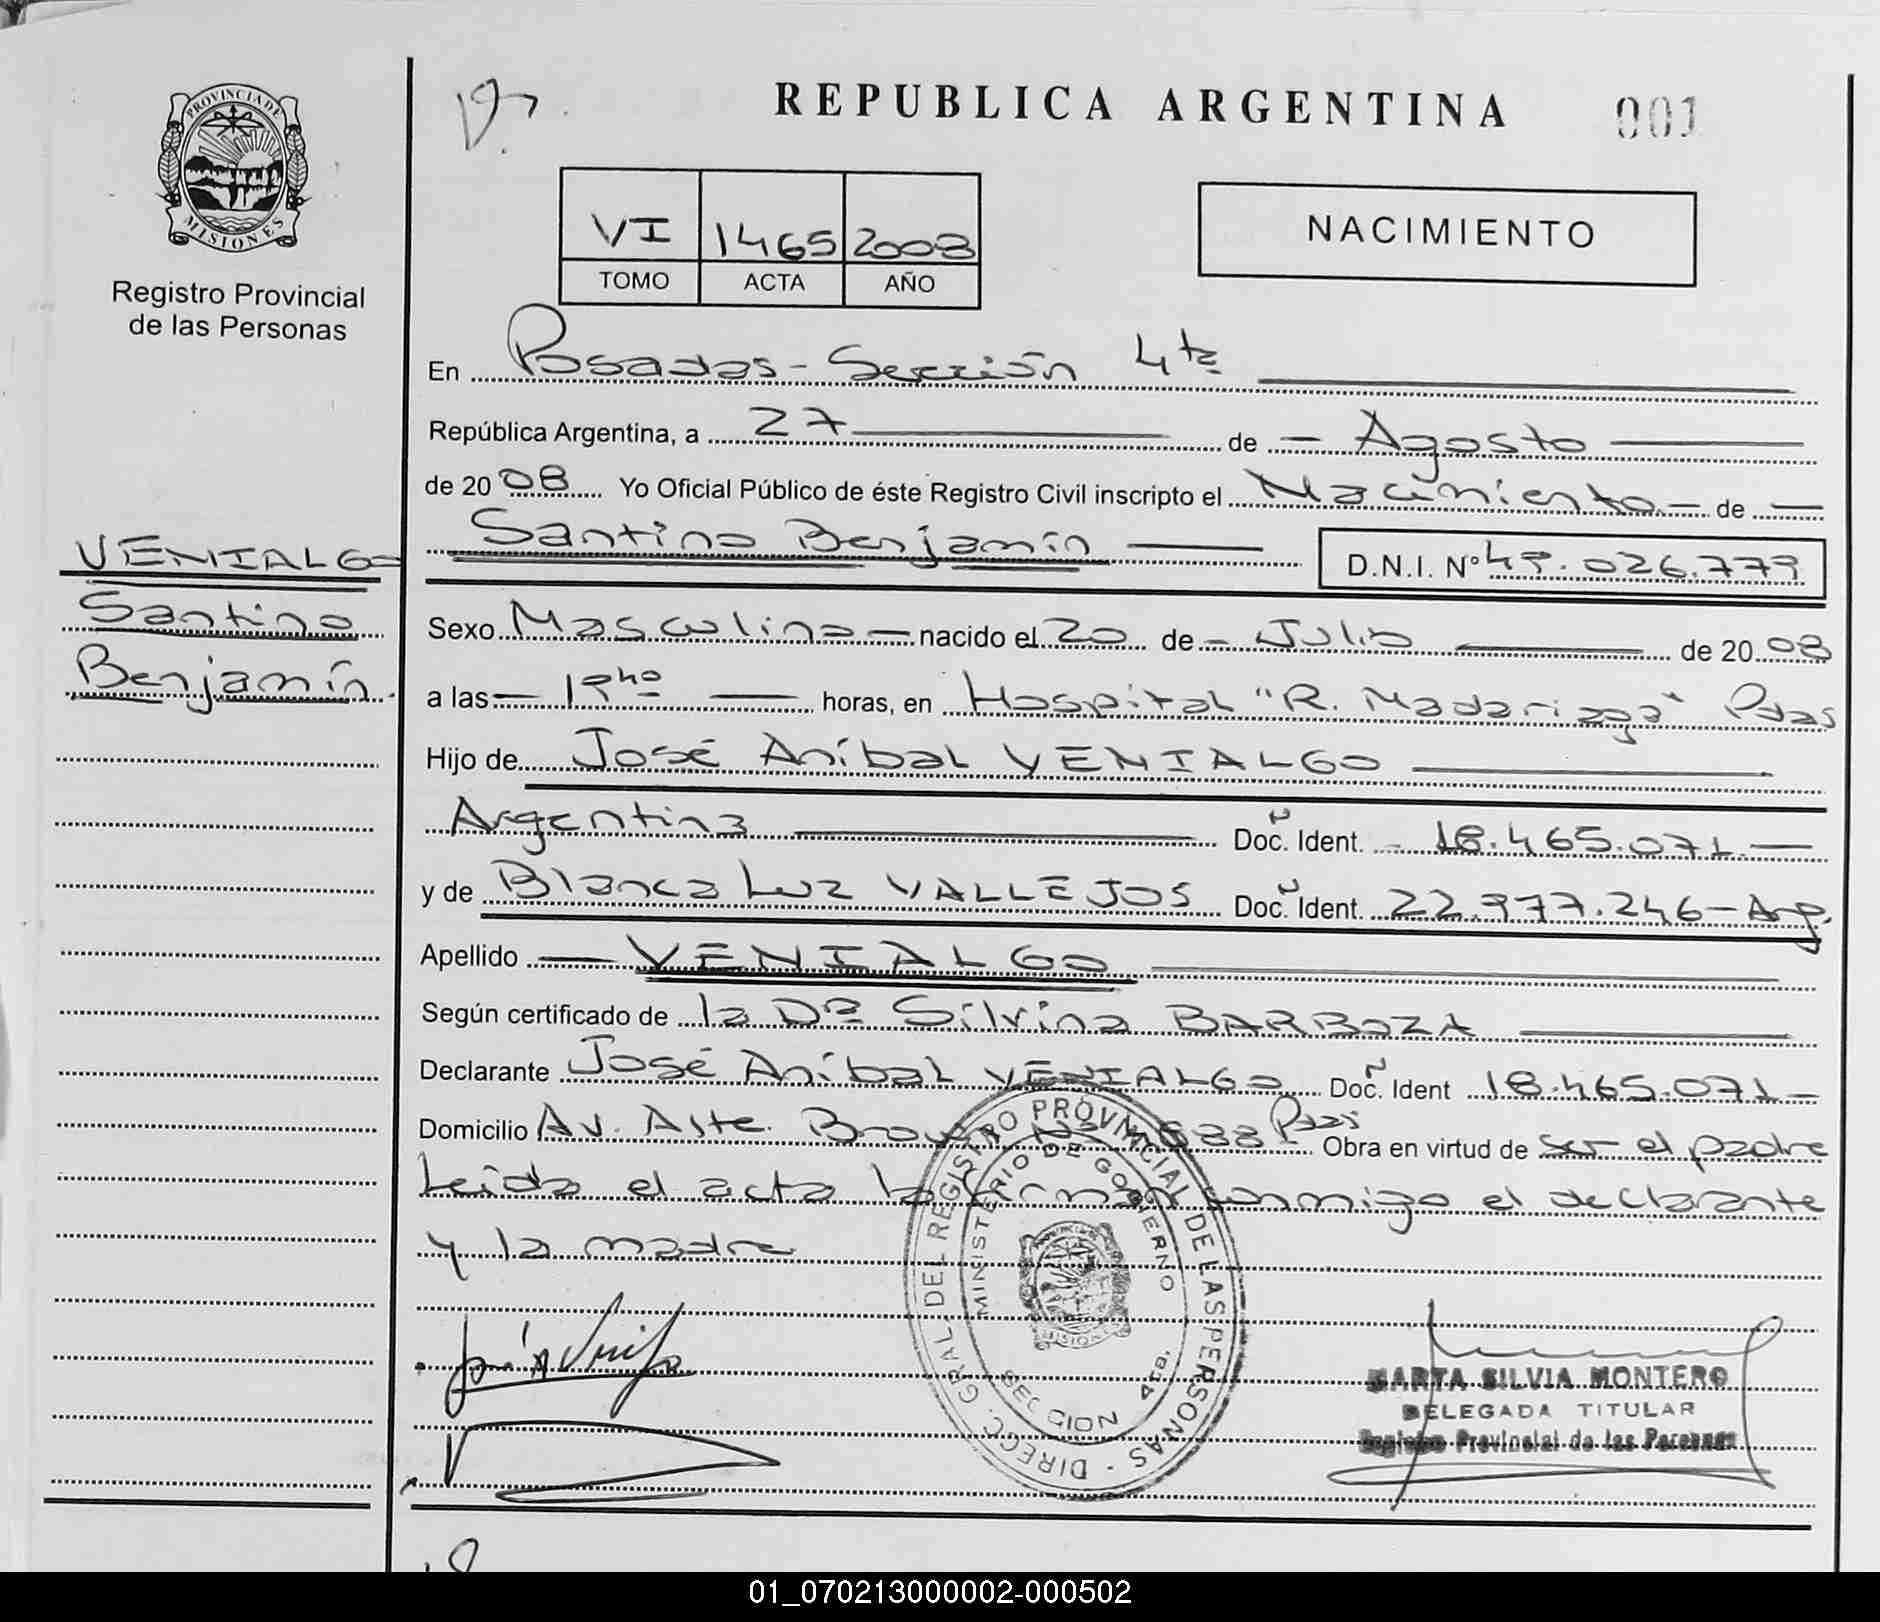 PROVINCIA DE
MISIONES
Registro Provincial
de las Personas
VENIALGO
Santino
Benjamín
REPUBLICA ARGENTINA
001
VI 1465 2008
TOMO ACTA AÑO
NACIMIENTO
En Posadas - Sección 4ta
República Argentina, a 27 de - Agosto
de 20 08 Yo Oficial Público de éste Registro Civil inscripto el Nacimiento - de -
Santino Benjamín
D.N.I. Nº 49.026.779
Sexo Masculino - nacido el 20 de - Julio de 20 08
a las - 19 ho horas, en Hospital "R. Madariaga" Pdas
Hijo de José Aníbal VENIALGO
Argentina Doc. Ident. - 18.465.071.-
y de Blanca Luz VALLEJOS Doc. Ident. 22.977.246 - Arg.
Apellido - VENIALGO
Según certificado de la Dra Silvina BARBOZA
Declarante José Aníbal VENIALGO Doc. Ident 18.465.071-
Domicilio Av. Alte. Brown Pdas Obra en virtud de ser el padre
Leida el acta la firman conmigo el declarante
y la madre
DIRECC. GRAL. DEL REGISTRO PROVINCIAL DE LAS PERSONAS
MINISTERIO DE GOBIERNO
MISIONES
SECCION 4ta.
MARTA SILVIA MONTERO
DELEGADA TITULAR
Registro Provincial de las Personas
01_070213000002-000502